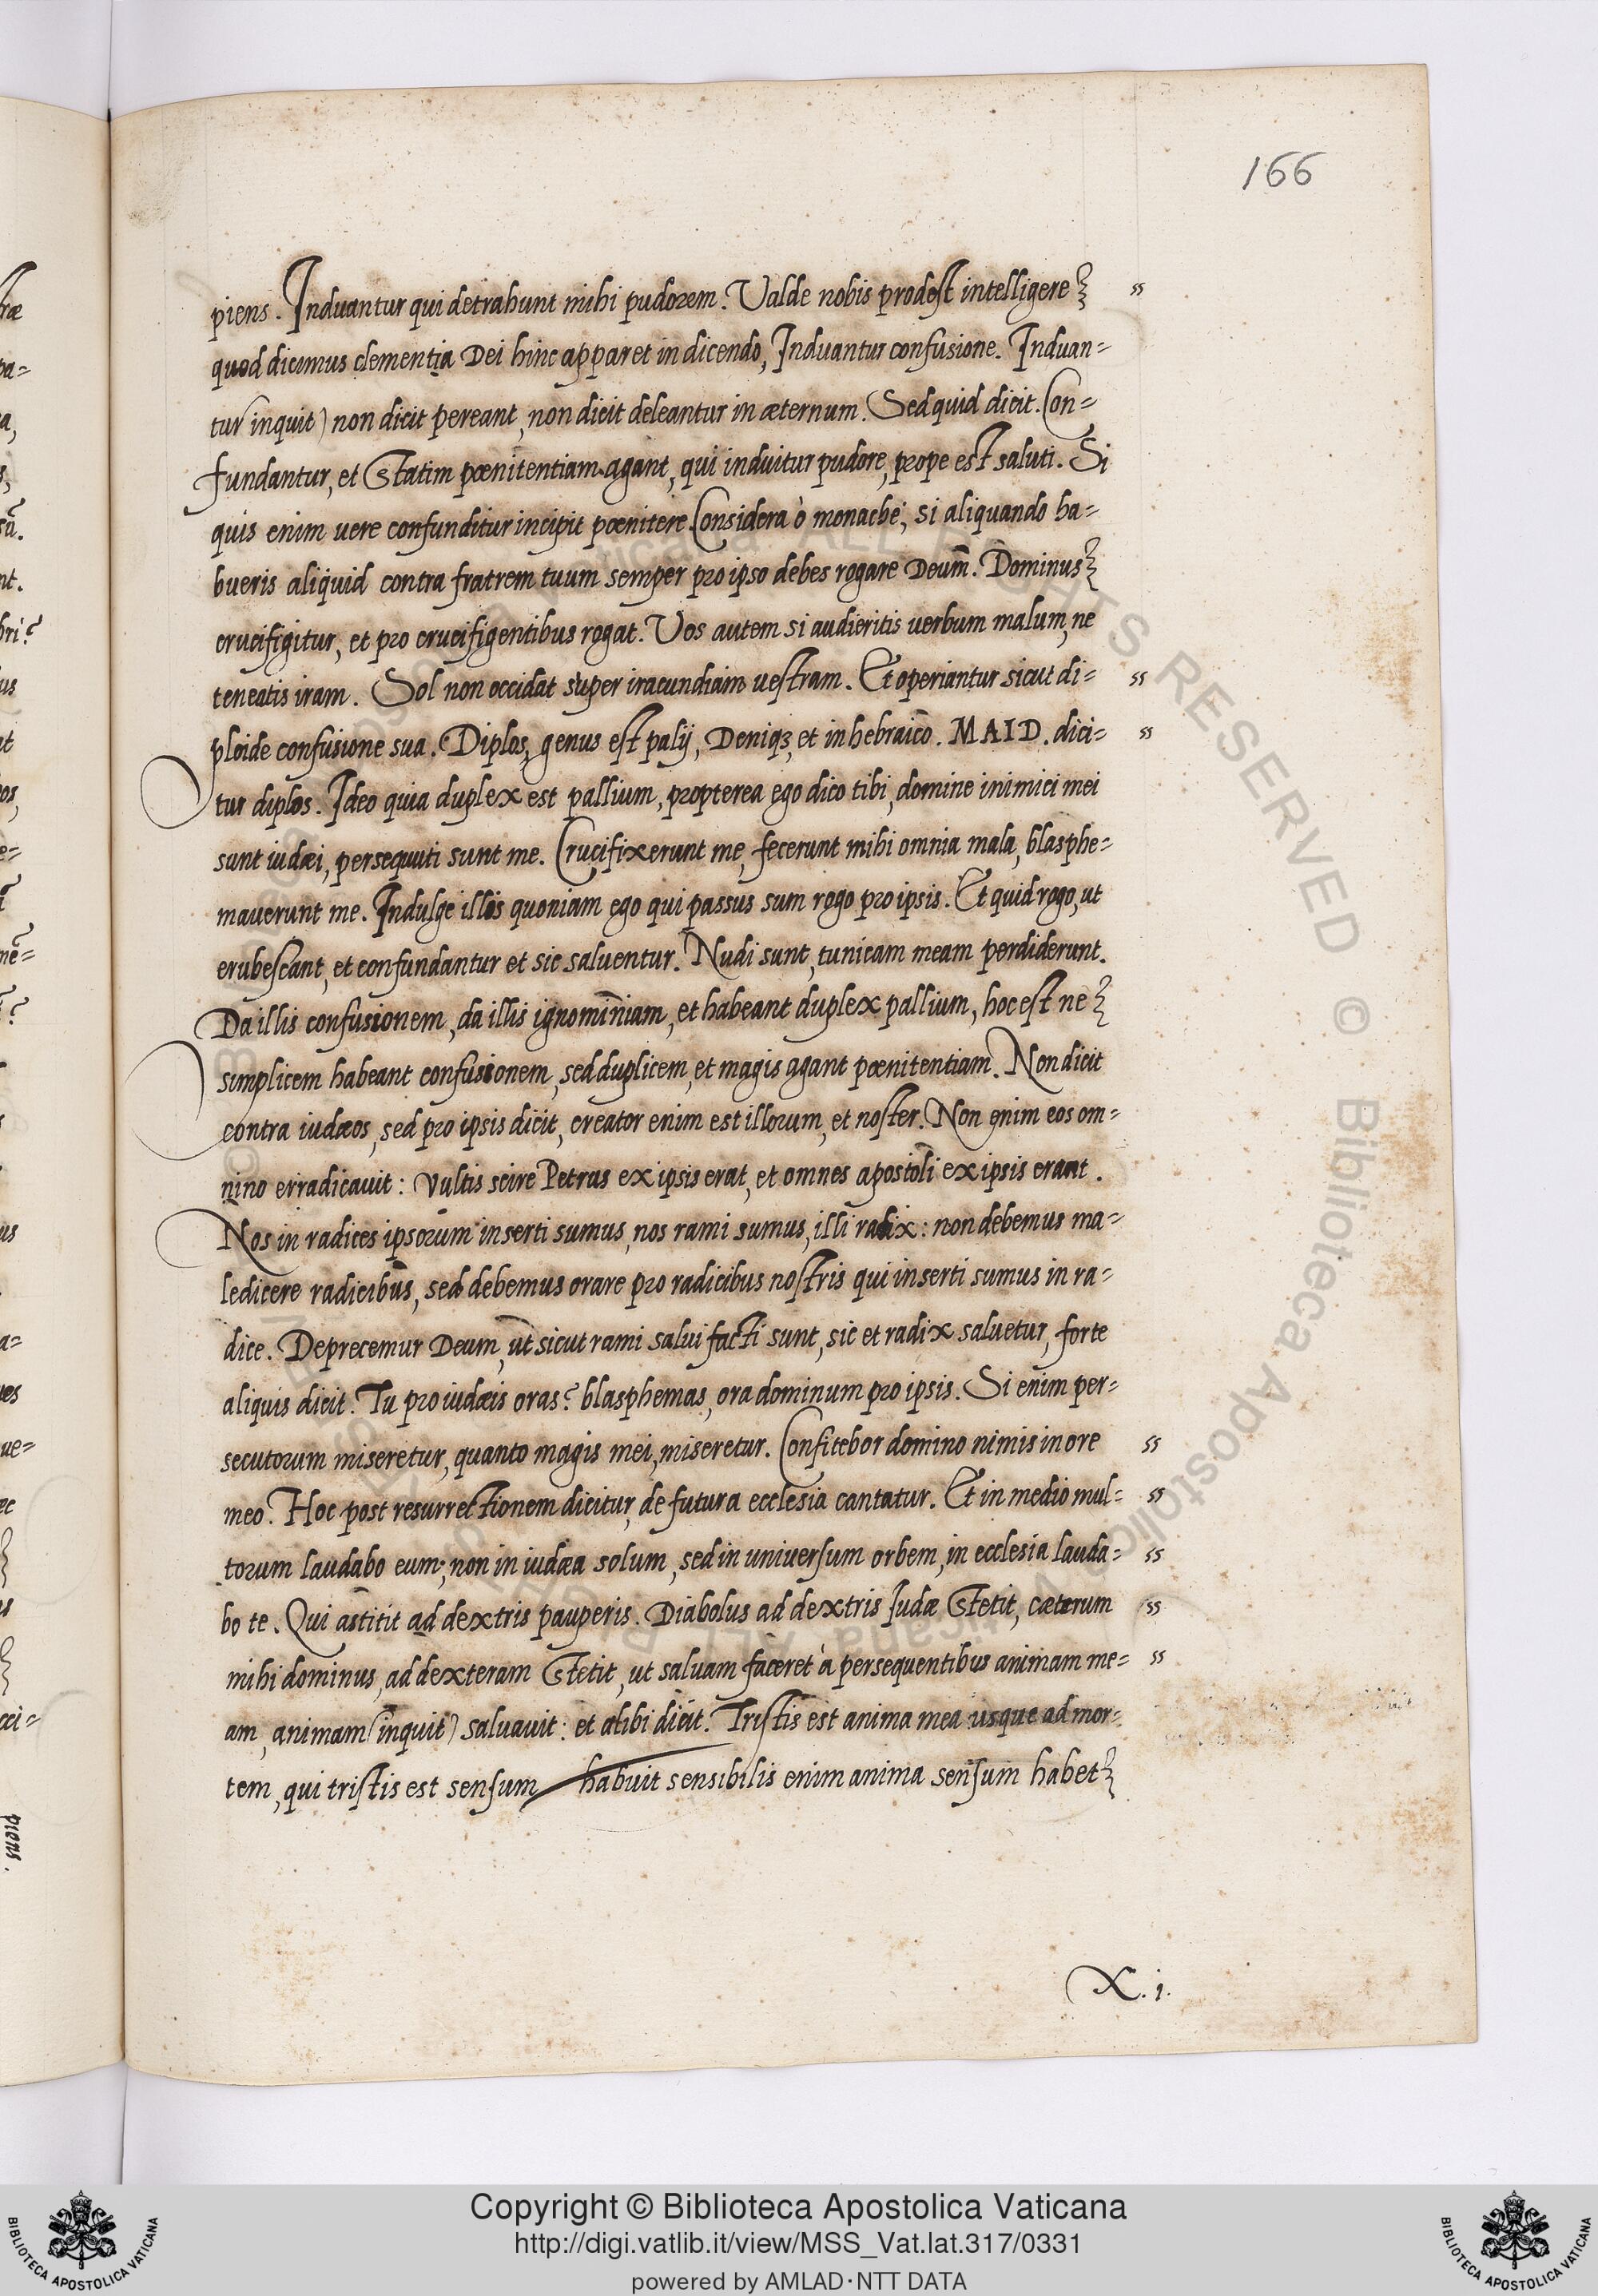 166
piens. Induantur qui detrahunt mihi pudorem. Valde nobis prodest intelligere
quod dicimus clementia Dei hinc apparet in dicendo, Induantur confusione. Induan=
tur (inquit) non dicit pereant, non dicit deleantur in æternum. Sed quid dicit. Con=
fundantur, et statim pœnitentiam agant, qui induitur pudore, prope est saluti. Si
quis enim uere confunditur incipit pœnitere. Considera ò monache, si aliquando ha=
bueris aliquid contra fratrem tuum semper pro ipso debes rogare Deum. Dominus
crucifigitur, et pro crucifigentibus rogat. Vos autem si audieritis uerbum malum, ne
teneatis iram. Sol non occidat super iracundiam uestram. Et operiantur sicut di=
ploide confusione sua. Diplos, genus est palij, Deniqꝫ, et in hebraico. MAID. dici=
tur diplos. Ideo quia duplex est pallium, propterea ego dico tibi, domine inimici mei
sunt iudæi, persequuti sunt me. Crucifixerunt me, fecerunt mihi omnia mala, blasphe=
mauerunt me. Indulge illis quoniam ego qui passus sum rogo pro ipsis. Et quid rogo, ut
erubescant, et confundantur et sic saluentur. Nudi sunt, tunicam meam perdiderunt.
Da illis confusionem, da illis ignominiam, et habeant duplex pallium, hoc est ne
simplicem habeant confusionem, sed duplicem, et magis agant pœnitentiam. Non dicit
contra iudæos, sed pro ipsis dicit, creator enim est illorum, et noster. Non enim eos om=
nino erradicauit: vultis scire Petrus ex ipsis erat, et omnes apostoli ex ipsis erant.
Nos in radices ipsorum inserti sumus, nos rami sumus, illi radix: non debemus ma=
ledicere radicibus, sed debemus orare pro radicibus nostris qui inserti sumus in ra=
dice. Deprecemur Deum, ut sicut rami salui facti sunt, sic et radix saluetur, forte
aliquis dicit. Tu pro iudæis oras? blasphemas, ora dominum pro ipsis. Si enim per=
secutorum miseretur, quanto magis mei, miseretur. Confitebor domino nimis in ore
meo. Hoc post resurrectionem dicitur, de futura ecclesia cantatur. Et in medio mul=
torum laudabo eum; non in iudæa solum, sed in uniuersum orbem, in ecclesia lauda=
bo te. Qui astitit ad dextris pauperis. Diabolus ad dextris Iudæ stetit, cæterum
mihi dominus, ad dexteram stetit, ut saluam faceret à persequentibus animam me=
am, animam (inquit) saluauit: et alibi dicit. Tristis est anima mea usque ad mor=
tem, qui tristis est sensum habuit sensibilis enim anima sensum habet
X.i.
Copyright © Biblioteca Apostolica Vaticana
http://digi.vatlib.it/view/MSS_Vat.lat.317/0331
powered by AMLAD·NTT DATA
BIBLIOTECA APOSTOLICA VATICANA
BIBLIOTECA APOSTOLICA VATICANA